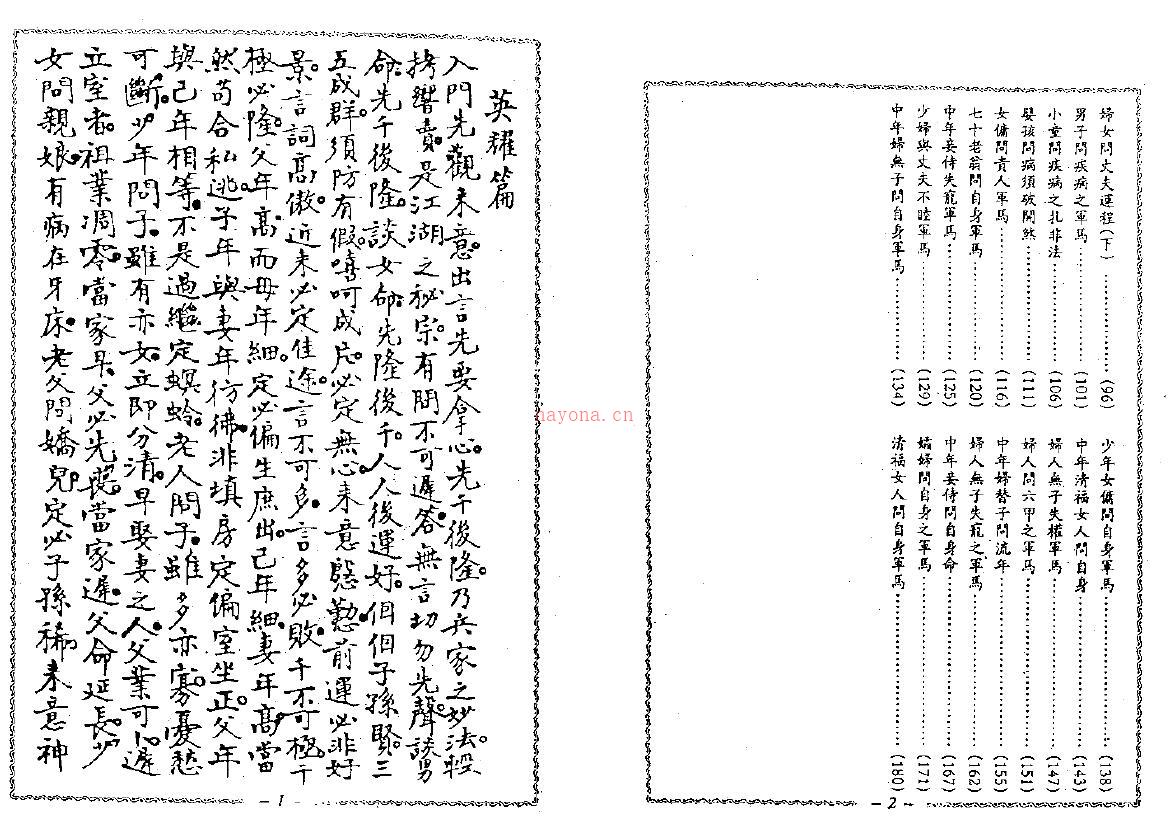 婦女問丈夫運程(下)……………(96)
男子問疾病之軍馬……………(101)
小童問疾病之扎非法……………(106)
嬰孩問病須破關煞……………(111)
女傭問貴人軍馬……………(116)
七十老翁問自身軍馬……………(120)
中年妾侍失寵軍馬……………(125)
少婦與丈夫不睦軍馬……………(129)
中年婦無子問自身軍馬……………(134)
少年女傭問自身軍馬……………(138)
中年清福女人問自身……………(143)
婦人無子失權軍馬……………(147)
婦人問六甲之軍馬……………(151)
中年婦替子問流年……………(155)
婦人無子失寵之軍馬……………(162)
中年妾侍問自身命……………(167)
孀婦問自身之軍馬……………(171)
清福女人問自身軍馬……………(180)
-2-
英耀篇
入門先觀來意。出言先要拿心。先千後隆。乃兵家之妙法。輕
拷響賣。是江湖之秘宗。有問不可遲答。無言切勿先聲。談男
命。先千後隆。談女命。先隆後千。人人後運好。個個子孫賢。三
五成群。須防有假。嘻呵成片。必定無心。來意慇懃。前運必非好
景。言詞高傲。近來必定佳途。言不可多。言多必敗。千不可極。千
極必隆。父年高而母年細。定必偏生庶出。己年細。妻年高。當
然苟合私逃。子年與妻年彷彿。非填房定偏室坐正。父年
與己年相等。不是過繼定螟蛉。老人問子。雖多亦寡。憂愁
可斷。少年問子。雖有亦女。立即分清。早娶妻之人。父業可人。遲
立室者。祖業凋零。當家早。父必先喪。當家遲。父命延長。少
女問親娘。有病在牙床。老父問嬌兒。定必子孫稀。來意神
-1-
hayona.cn